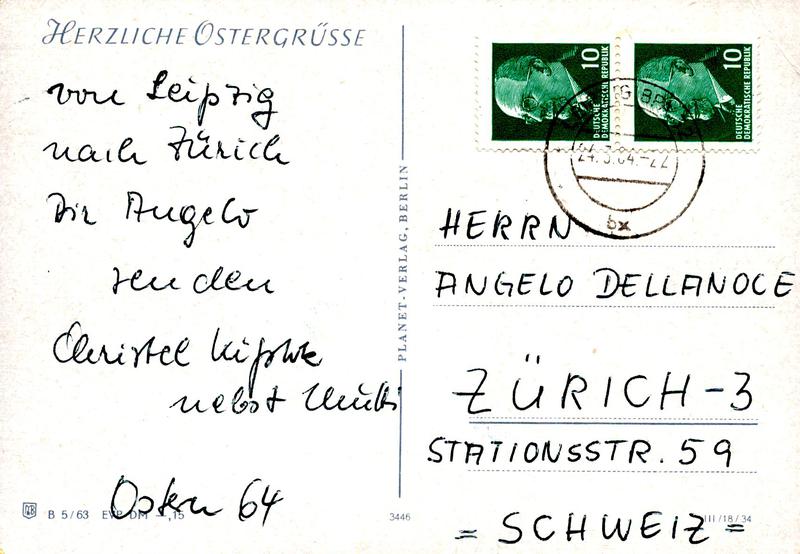 HERZLICHE OSTERGRÜSSE
von Leipzig
nach Zürich
Dir Angelo
senden
Christel
nebst Mutti
Ostern 64
B 5/63 EVP DM -,15
PLANET-VERLAG, BERLIN
3446
10
DEUTSCHE
DEMOKRATISCHE REPUBLIK
10
DEUTSCHE
DEMOKRATISCHE REPUBLIK
24.3.64.-22
bx
HERRN
ANGELO DELLANOCE
ZÜRICH-3
STATIONSSTR. 59
= SCHWEIZ =
III/18/34